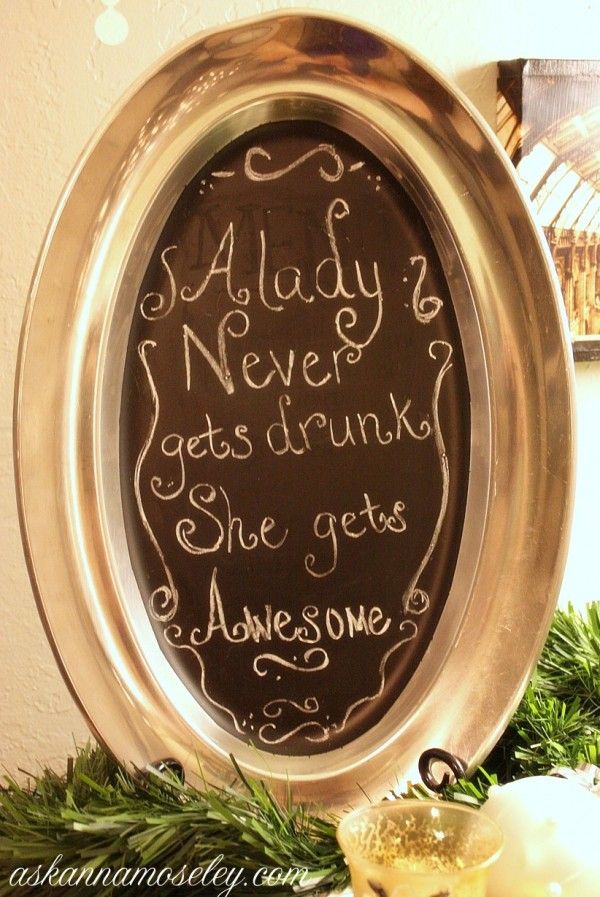 A lady
Never
gets drunk
She gets
Awesome
askannamoseley.com